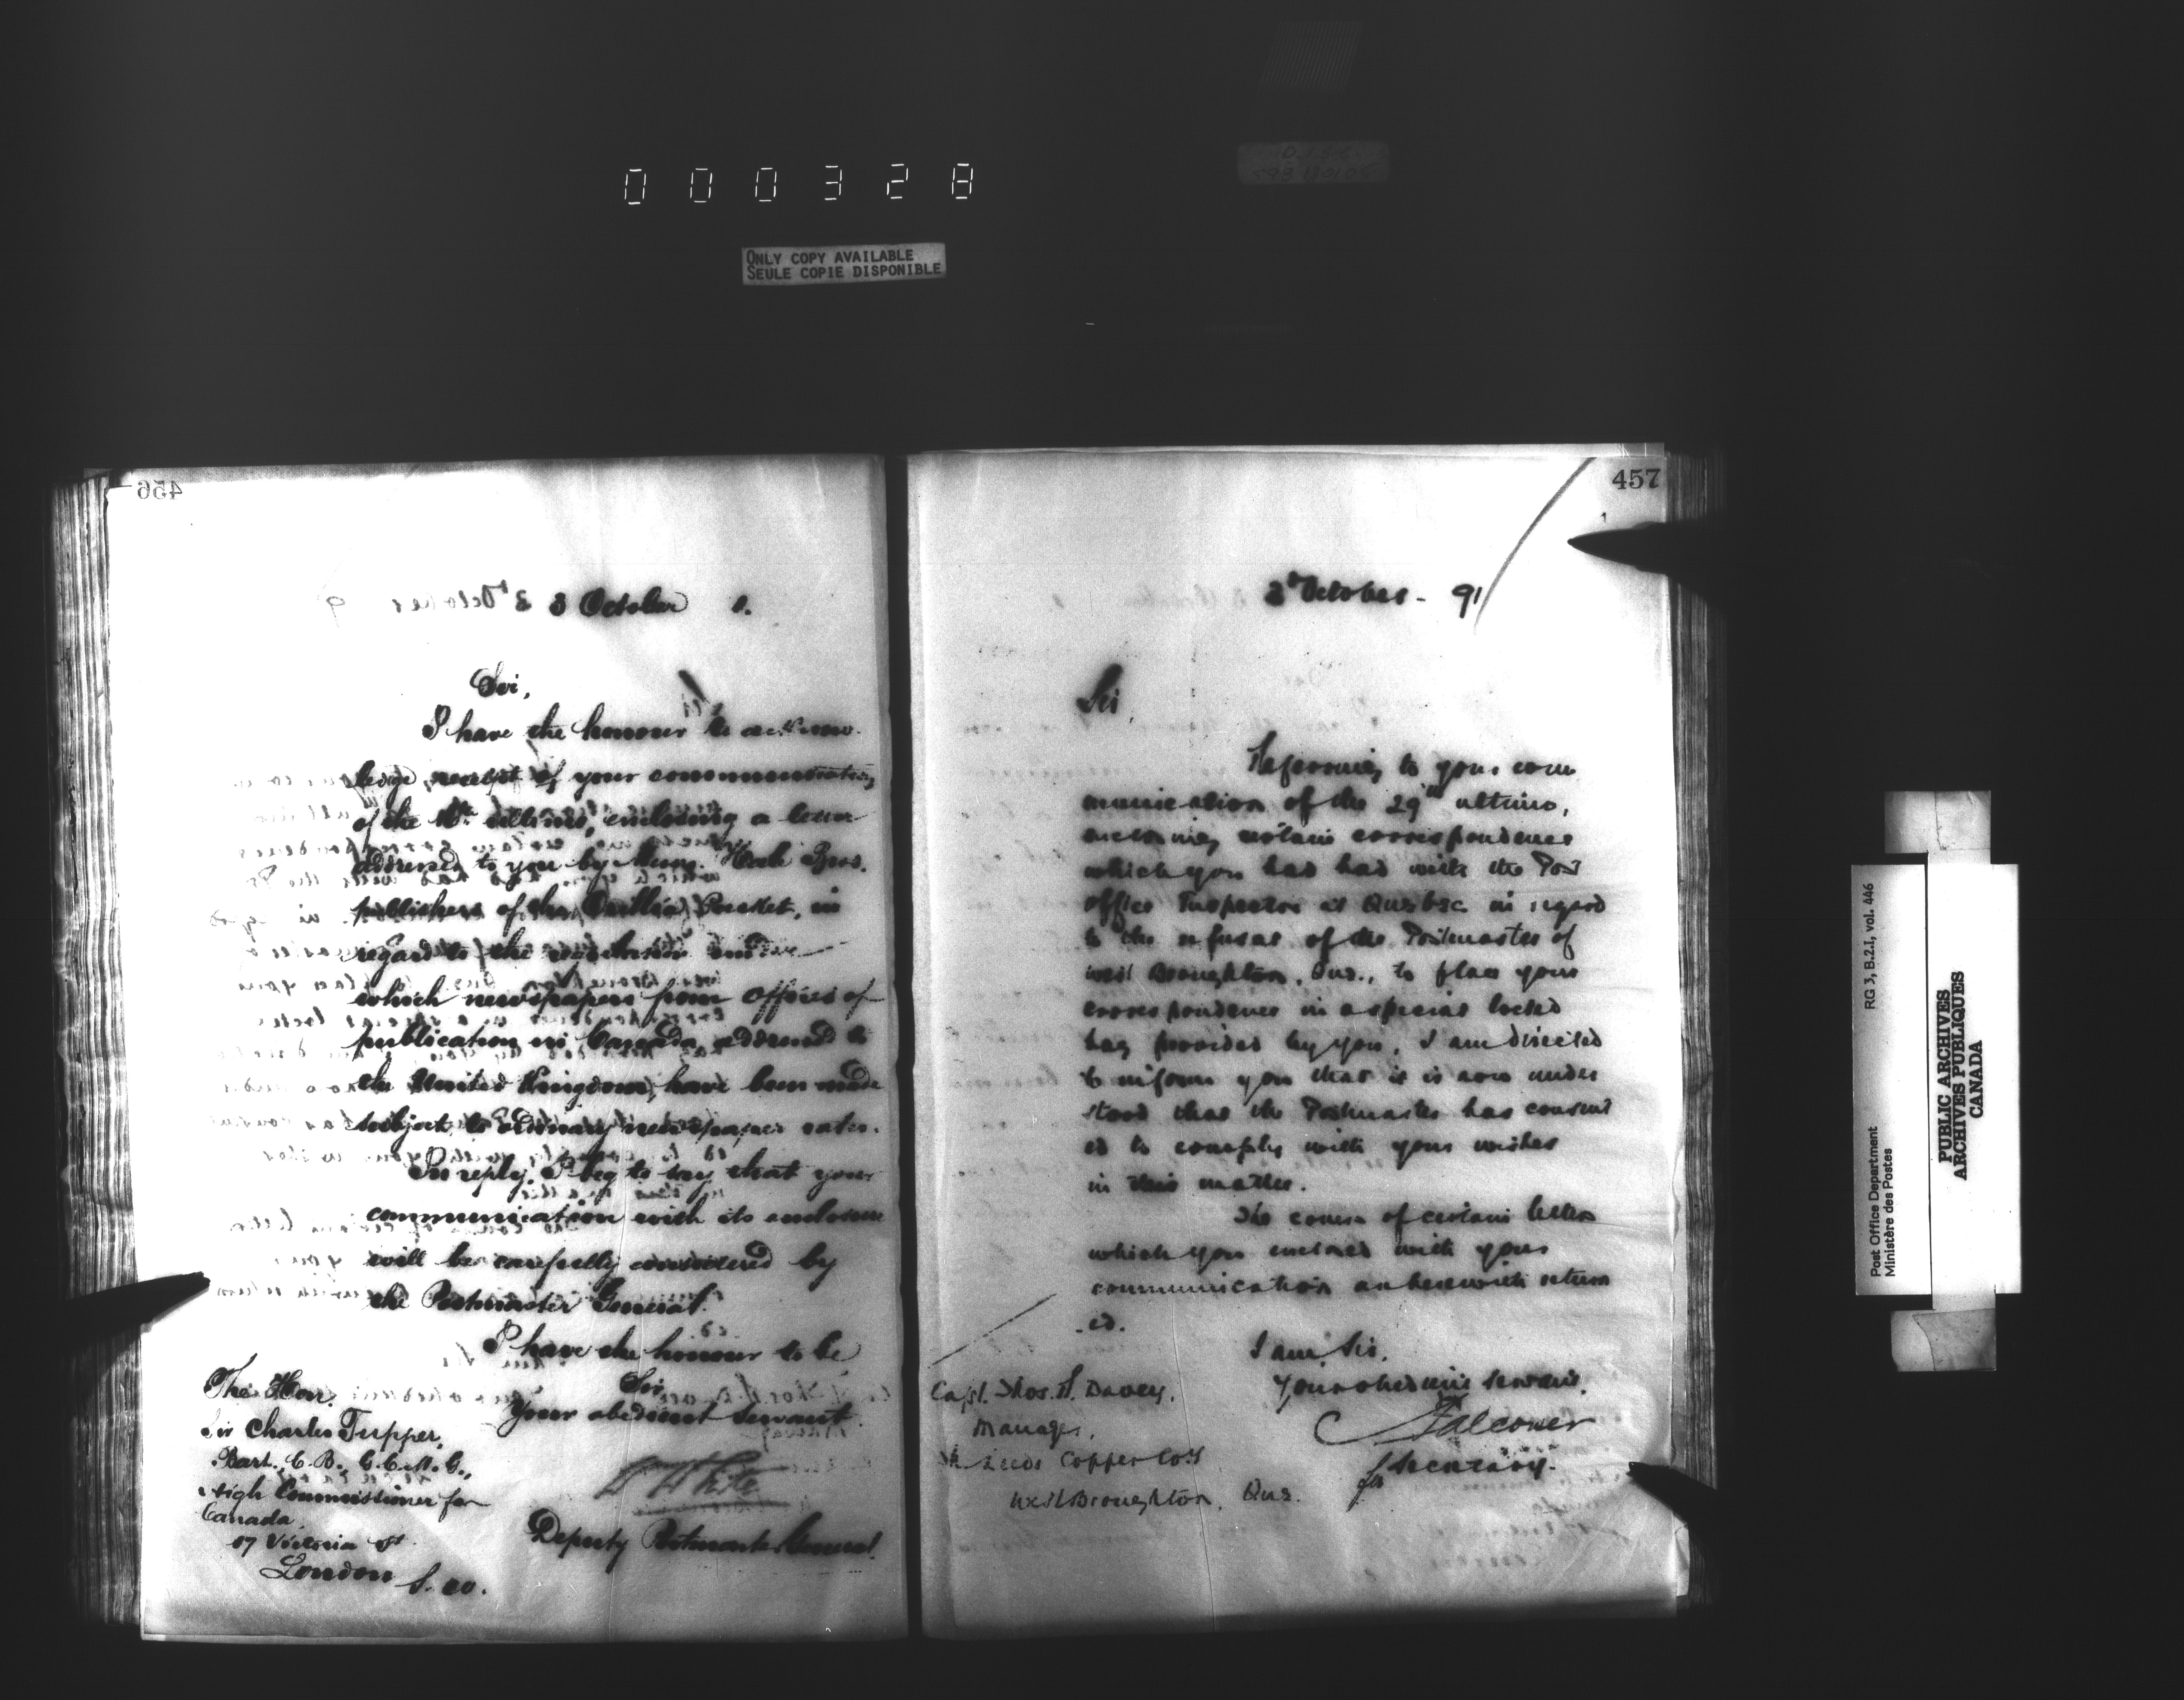 000328
ONLY COPY AVAILABLE
SEULE COPIE DISPONIBLE
456
3 October 1.
Sir,
I have the honour to acknow-
ledge receipt of your communication
of the ultimo, enclosing a letter
addressed to you by Messrs. Bros.
publishers of the Packet, in
regard to the under
which newspapers from offices of
publication in Canada, addressed to
the United Kingdom, have been made
subject to ordinary newspaper rates.
In reply, I beg to say that your
communication with its enclosure
will be carefully considered by
the Postmaster General.
I have the honour to be
Sir,
Your obedient Servant
White
Deputy Postmaster General.
The Hon.
Sir Charles Tupper,
Bart., C.B., G.C.M.G.,
High Commissioner for
Canada,
17 Victoria St
London S.W.
457
3d October - 91
Sir,
Referring to your com
munication of the 29th ultimo,
enclosing certain correspondence
which you had had with the Post
office Inspector at Quebec in regard
to the refusal of the Postmaster of
West Broughton, Que., to place your
correspondence in a special locked
bag provided by you, I am directed
to inform you that it is now under
stood that the Postmaster has consent
ed to comply with your wishes
in this matter.
The covers of certain letters
which you enclosed with your
communication are herewith return
-ed.
I am, Sir,
Your obedient Servant,
Falconer
for Secretary.
Capt. Thos. H. Davey,
Manager,
Leeds Copper Co's
West Broughton, Que.
Post Office Department RG 3, B.2.1, vol. 446
Ministère des Postes
PUBLIC ARCHIVES
ARCHIVES PUBLIQUES
CANADA